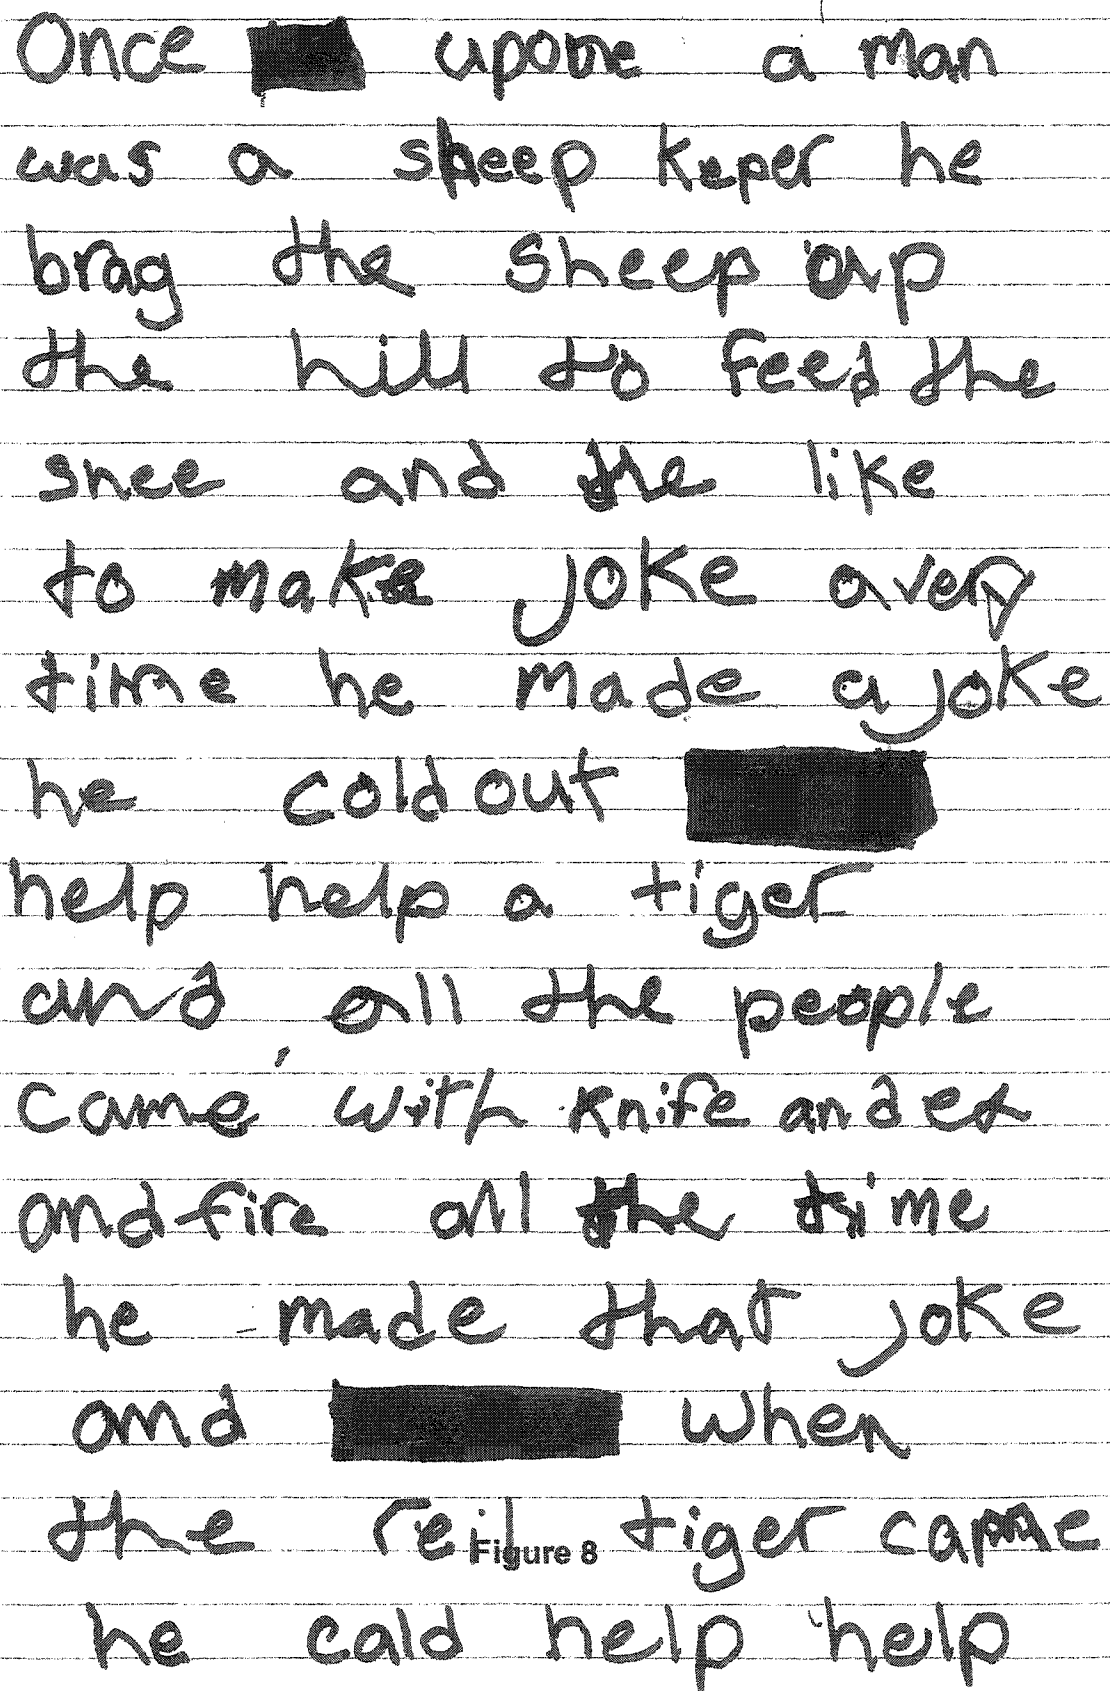 Once upone a man
was a sheep keper he
brag the sheep orp
the hill to feed the
shee and the like
to make joke avery
time he made a joke
he cold out
help help a tiger
and all the people
came with knife and ex
and fire all the time
he made that joke
and when
the reil tiger came
Figure 8
he cald help help